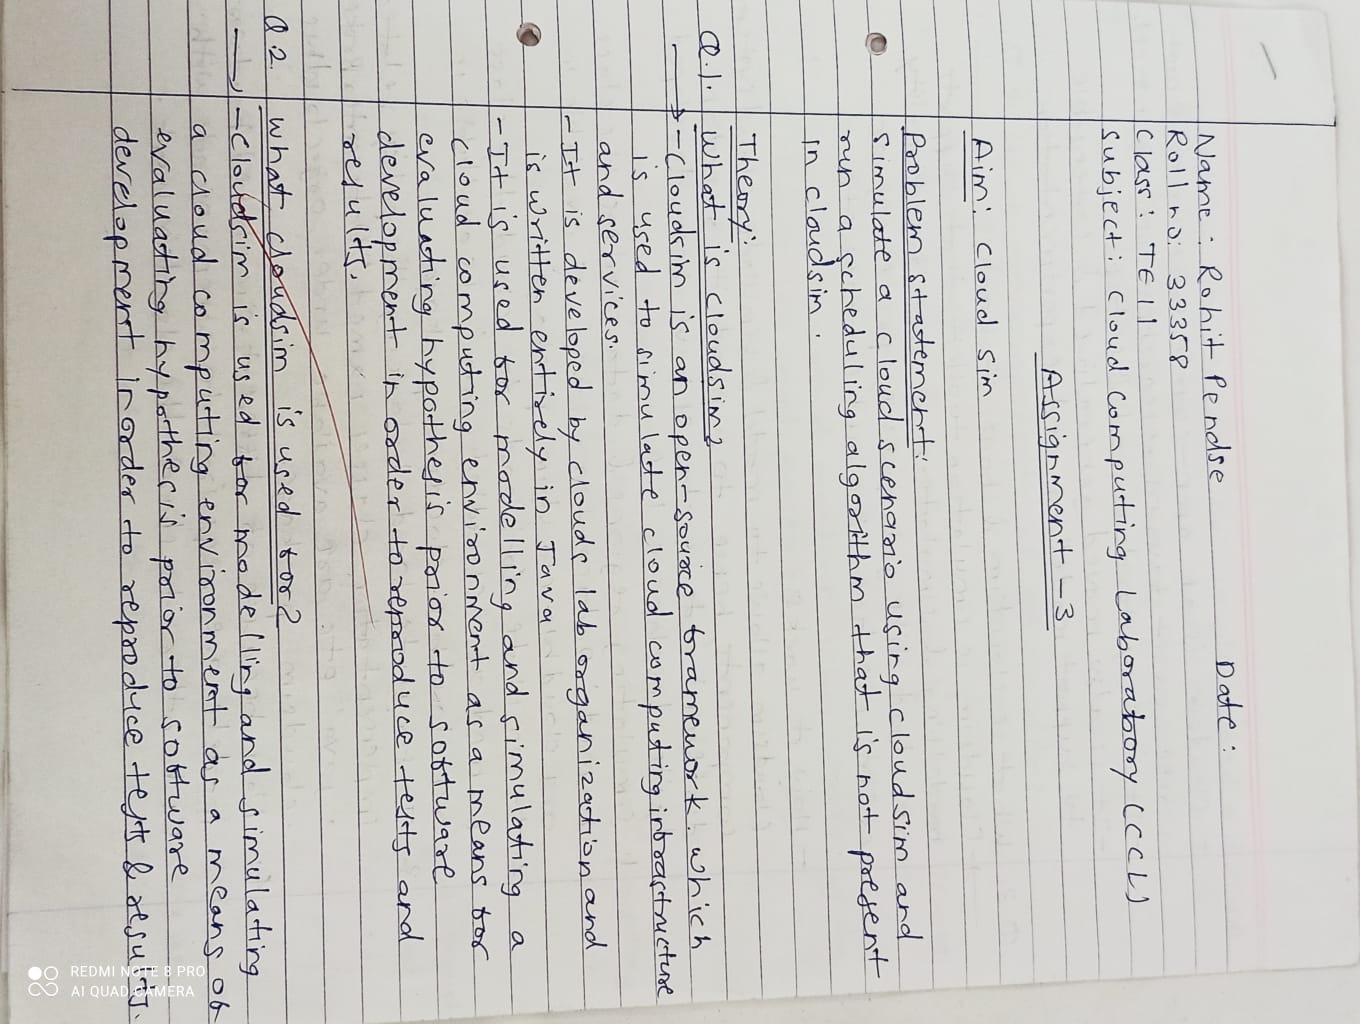 Date :
Name : Rohit Pendse
Roll no: 33358
Class : TE 11
Subject : Cloud Computing Laboratory (CCL)
Assignment - 3
Aim : Cloud Sim
Problem statement :
Simulate a cloud scenario using cloudsim and
run a scheduling algorithm that is not present
in cloudsim .
Theory :
Q.1. What is cloudsim?
→ - Cloudsim is an open-source framework. which
is used to simulate cloud computing infrastructure
and services.
- It is developed by clouds lab organization and
is written entirely in Java
- It is used for modelling and simulating a
cloud computing environment as a means for
evaluating hypothesis prior to software
development in order to reproduce tests and
results.
Q 2. What cloudsim is used for?
→ - Cloudsim is used for modelling and simulating
a cloud computing environment as a means of
evaluating hypothecis prior to software
development in order to reproduce tests & results.
REDMI NOTE 8 PRO
AI QUAD CAMERA